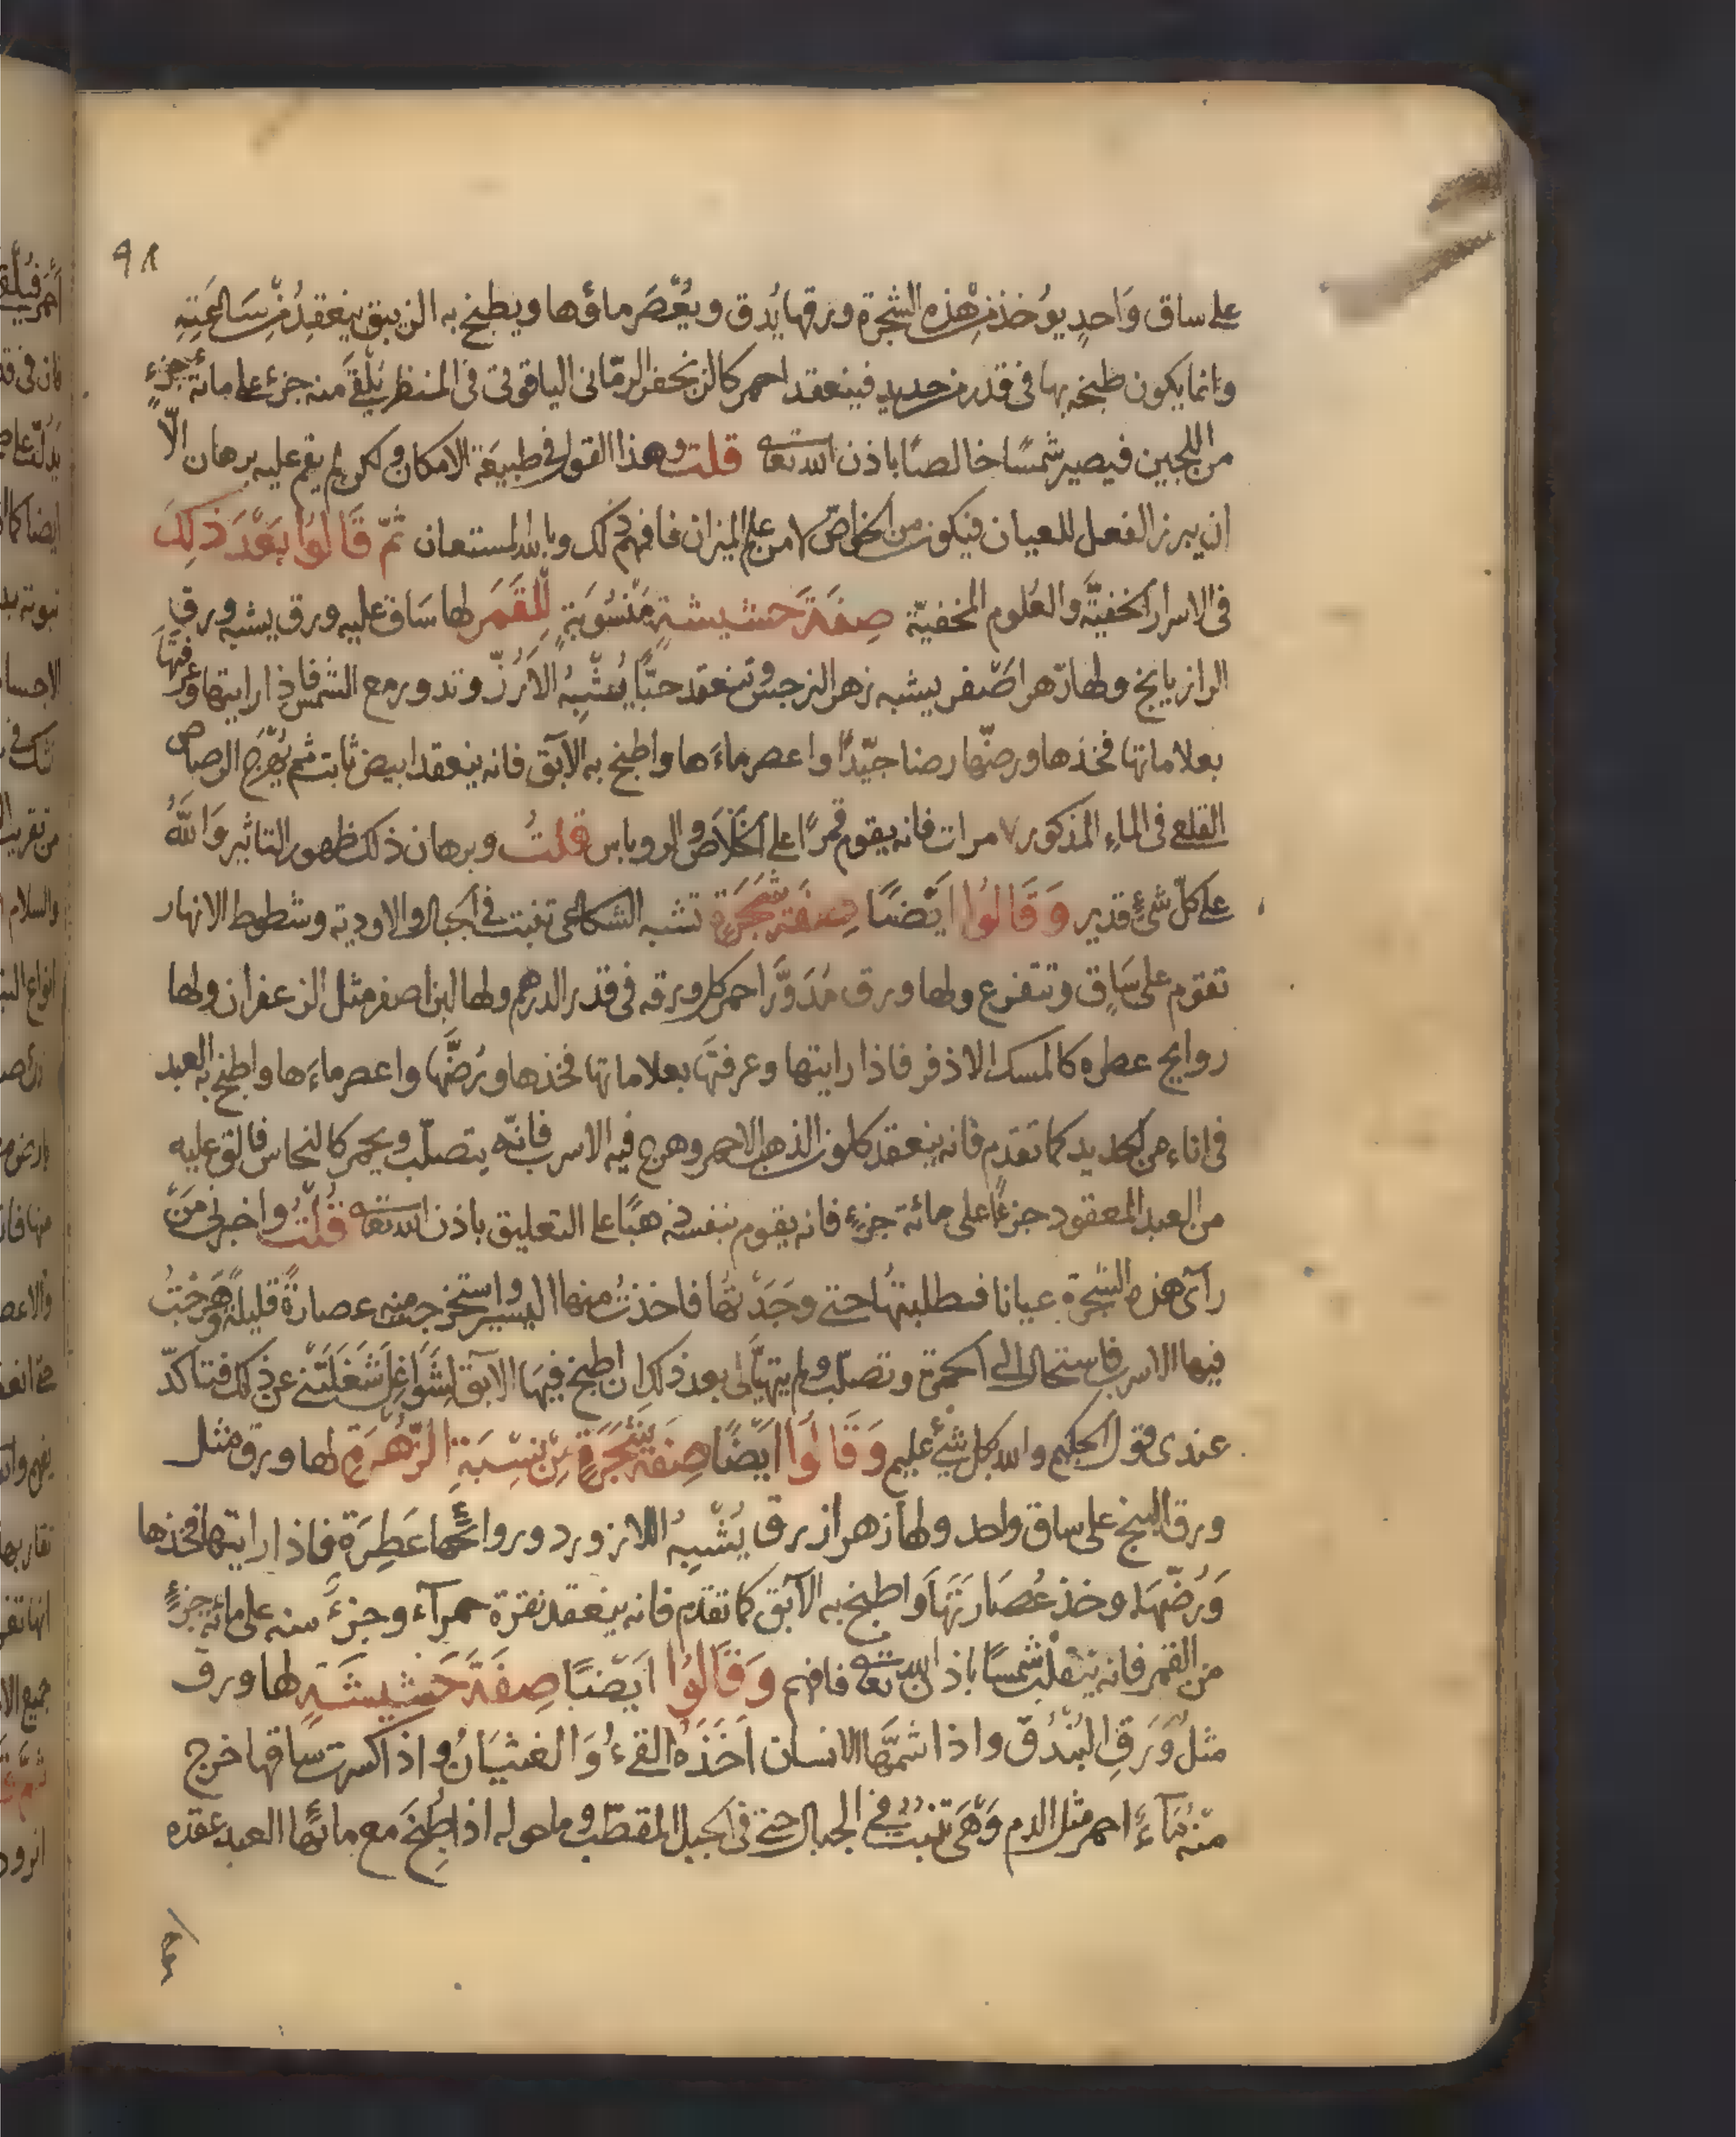 ٩٨
على ساق وَاحدٍ يوُخذ من هٰذه الشجرة ورقها يُدق ويُعْصَر ماؤها ويطبخ به الزيبق ينعقِدُ مِّن سَاعَتِهِ
وانما يكون طبخه بها فى قدر من حديد فينعقد احمر كالزنجفر الرمّانى الياقوتى فى المنظر يُلْقىَ منه جزءٌ على مائة جزءٍ
من اللجين فيصير شمسًا خالصًا باذن الله تعالى قلت وهذا القول فى طبيعَة الامكان ولكن لم يقم عليه برهان الّا
ان يبرز الفعل للعيان فيكون من الخواصّ لا من علم الميزان فافهم ذلك وبالله المستعان ثمّ قَالوُا بَعْدَ ذلِكَ
فى الاسرار الخفيّة والعلوم المخفيّة صِفَة حَشيشةٍ مَنْسُوَبةٍ لِّلْقَمَر لها سَاق عليه ورق يشبه ورق
الرازيانج ولها زهر اصْفر يشبه زهر النرجس وتنعقد حبًّا يُشْبِهُ الاَرُزّ وتدور مع الشمس فاذا رايتها وعرفتهَا
بعلاماتها فخذها ورضّها رضا جيّدًا واعصر ماءَها واطبخ به الآبق فانه ينعقد ابيض ثابت ثم يُهْرَج الرصاص
القلعى فى الماء المذكور ٧ مرات فانه يقوم قمرًا على الخَلاَص والروباس قلتُ وبرهان ذلك ظهور التاثير وَاللّٰهُ
على كلّ شئٍ قدير وَقَالوُا ايْضًا صِفَة شَجَرَةٍ تشبه الشكاعى تنبت فى الجبال والاودية وشطوط الانهار
تقوم على سَاقٍ وتتفرع ولها ورق مُدَوَّر احمر كل ورقه فى قدر الدرهم ولها لبن اصفر مثل الزعفران ولها
روايح عطره كالمسك الاذفر فاذا رايتها وعرفتهَا بعلاماتها فخذها ورُضَّها واعصر ماءَها واطبخ به العبد
فى اناء من الحديد كما تقدم فانه ينعقد كلون الذهب الاحمر وهرج فيه الاسرب فانّه يتصلّب ويحمر كالنحاس فالق عليه
من العبد المعقود جزءًا على مائة جزءٍ فانه يقوم بنفسه ذهبًا على التعليق باذن الله تعالى قُلْتُ واخبرنى مَنْ
رآى هذه الشجرة عيانا فطلبتهُا حتى وجَدْتُها فاخذتُ منها اليسير واستخرجت منه عصارةً قليلةً وهَرَجْتُ
فيها الاسرب فاستحال الى الحمرة وتصلّب ولم يتهيَّأ لى بعد ذلك ان اطبخ فيهَا الابق لِشَوَاغِل شَغَلَتْنى عن ذلك فتاكدّ
عندى قول الحكيم والله بكل شئٍ عليم وَقَالوُا ايْضًا صِفَة شَجَرَةٍ مِّن نِسْبَةِ الزُّهْرَةِ لها ورق مثل
ورق البنج على ساق واحد ولها زهر ازرق يُشْبِهُ اللازورد وروائحُها عَطِرَة فاذا رايتها فخذها
وَرُضّهَا وخذ عُصَارَتهَا وَاطبخ به الآبق كما تقدّم فانه ينعقد نقرة حمرآء وجزءٌ منه على مائة جزءٍ
من القمر فانه ينقلب شمسًا باذن الله تعالى فافهم وَقَالُوا ايَضًا صِفَة حَشيشَةٍ لها ورق
مثلُ وَرَقِ البُنْدُق واذا شمّها الانسان اَخَذَهُ القَىْءُ وَالغَثيَانُ واذا كسرت ساقها خرج
منْه مَآءٌ احمر مثل الدم وَهْىَ تنبتُ فى الجبال حتى فى الجبل المقطّب وما حوله اذا طُبِخَ مع مائها العبد عقده